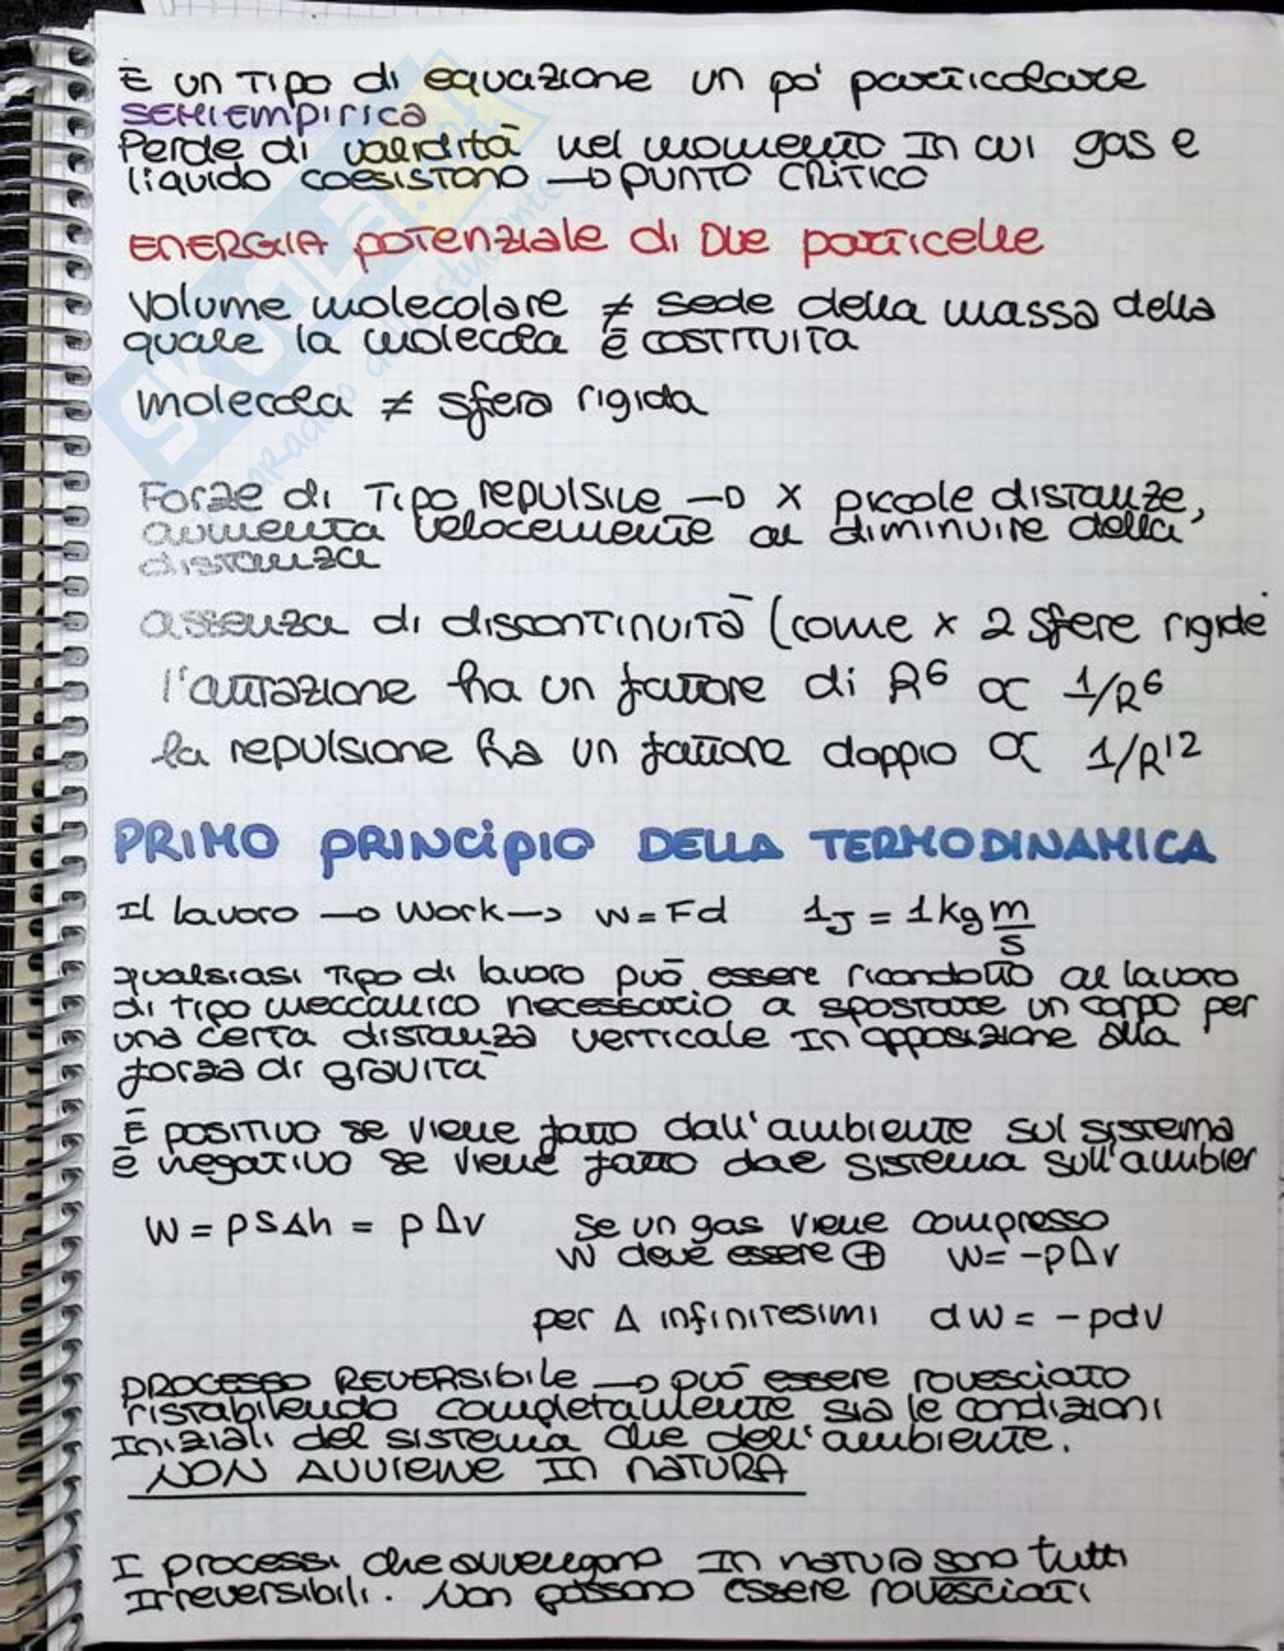 È un tipo di equazione un po' particolare
SEMIEMPIRICA
Perde di validità nel momento in cui gas e
liquido coesistono → PUNTO CRITICO
ENERGIA potenziale di due particelle
Volume molecolare ≠ sede della massa della
quale la molecola è costituita
molecola ≠ sfera rigida
Forze di tipo repulsile → x piccole distanze,
aumenta velocemente al diminuire della
distanza
assenza di discontinuità (come x 2 sfere rigide
l'attrazione ha un fattore di R⁶ ∝ 1/R⁶
la repulsione ha un fattore doppio ∝ 1/R¹²
PRIMO PRINCIPIO DELLA TERMODINAMICA
Il lavoro → Work → W = Fd 1J = 1kg m/s
qualsiasi tipo di lavoro può essere ricondotto al lavoro
di tipo meccanico necessario a spostare un corpo per
una certa distanza verticale in opposizione alla
forza di gravità
È positivo se viene fatto dall'ambiente sul sistema
è negativo se viene fatto dal sistema sull'ambien
W = pSΔh = pΔv se un gas viene compresso
W deve essere ⊕ W = -pΔv
per Δ infinitesimi dW = -pdV
PROCESSO REVERSIBILE → può essere rovesciato
ristabilendo completamente sia le condizioni
iniziali del sistema che dell'ambiente.
NON AVVIENE IN NATURA
I processi che avvengono in natura sono tutti
irreversibili. Non possono essere rovesciati